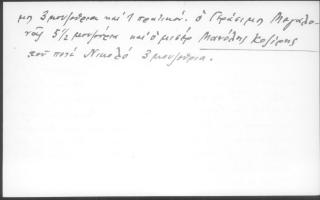 μη 3 μουζούρια και 1 πρατικόν. ὁ Γεράσιμη Μαγαλο-
νᾶς 5 1/2 μουζούρια και ὁ μισέρ Μανόλης Κοζύρης
τοῦ ποτέ Νικολό 3 μουζούρια.